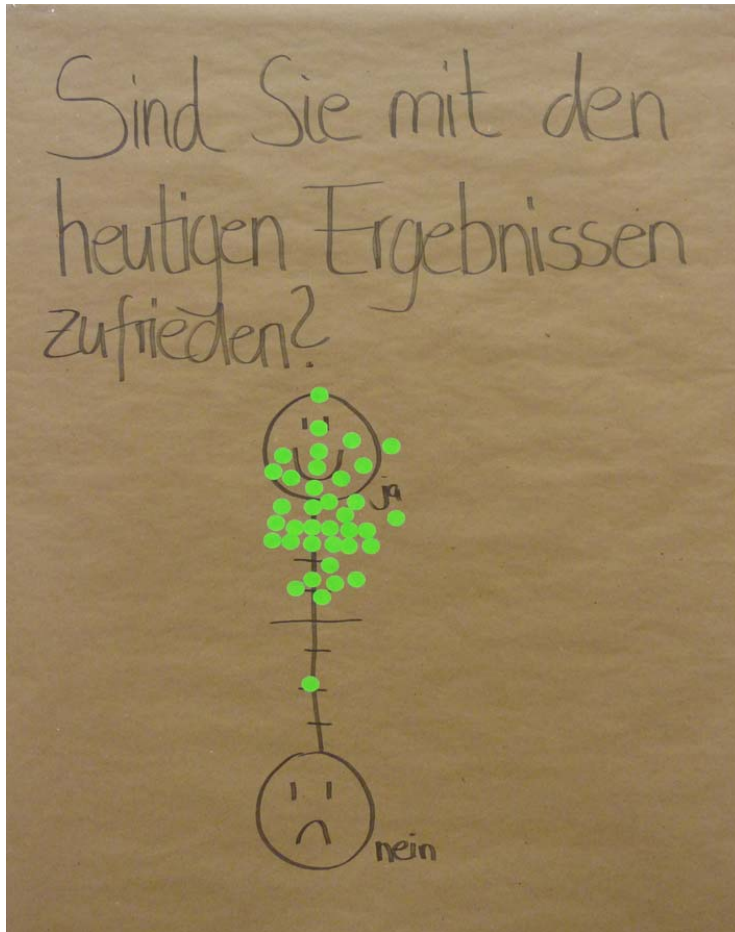 Sind Sie mit den
heutigen Ergebnissen
zufrieden?
ja
nein